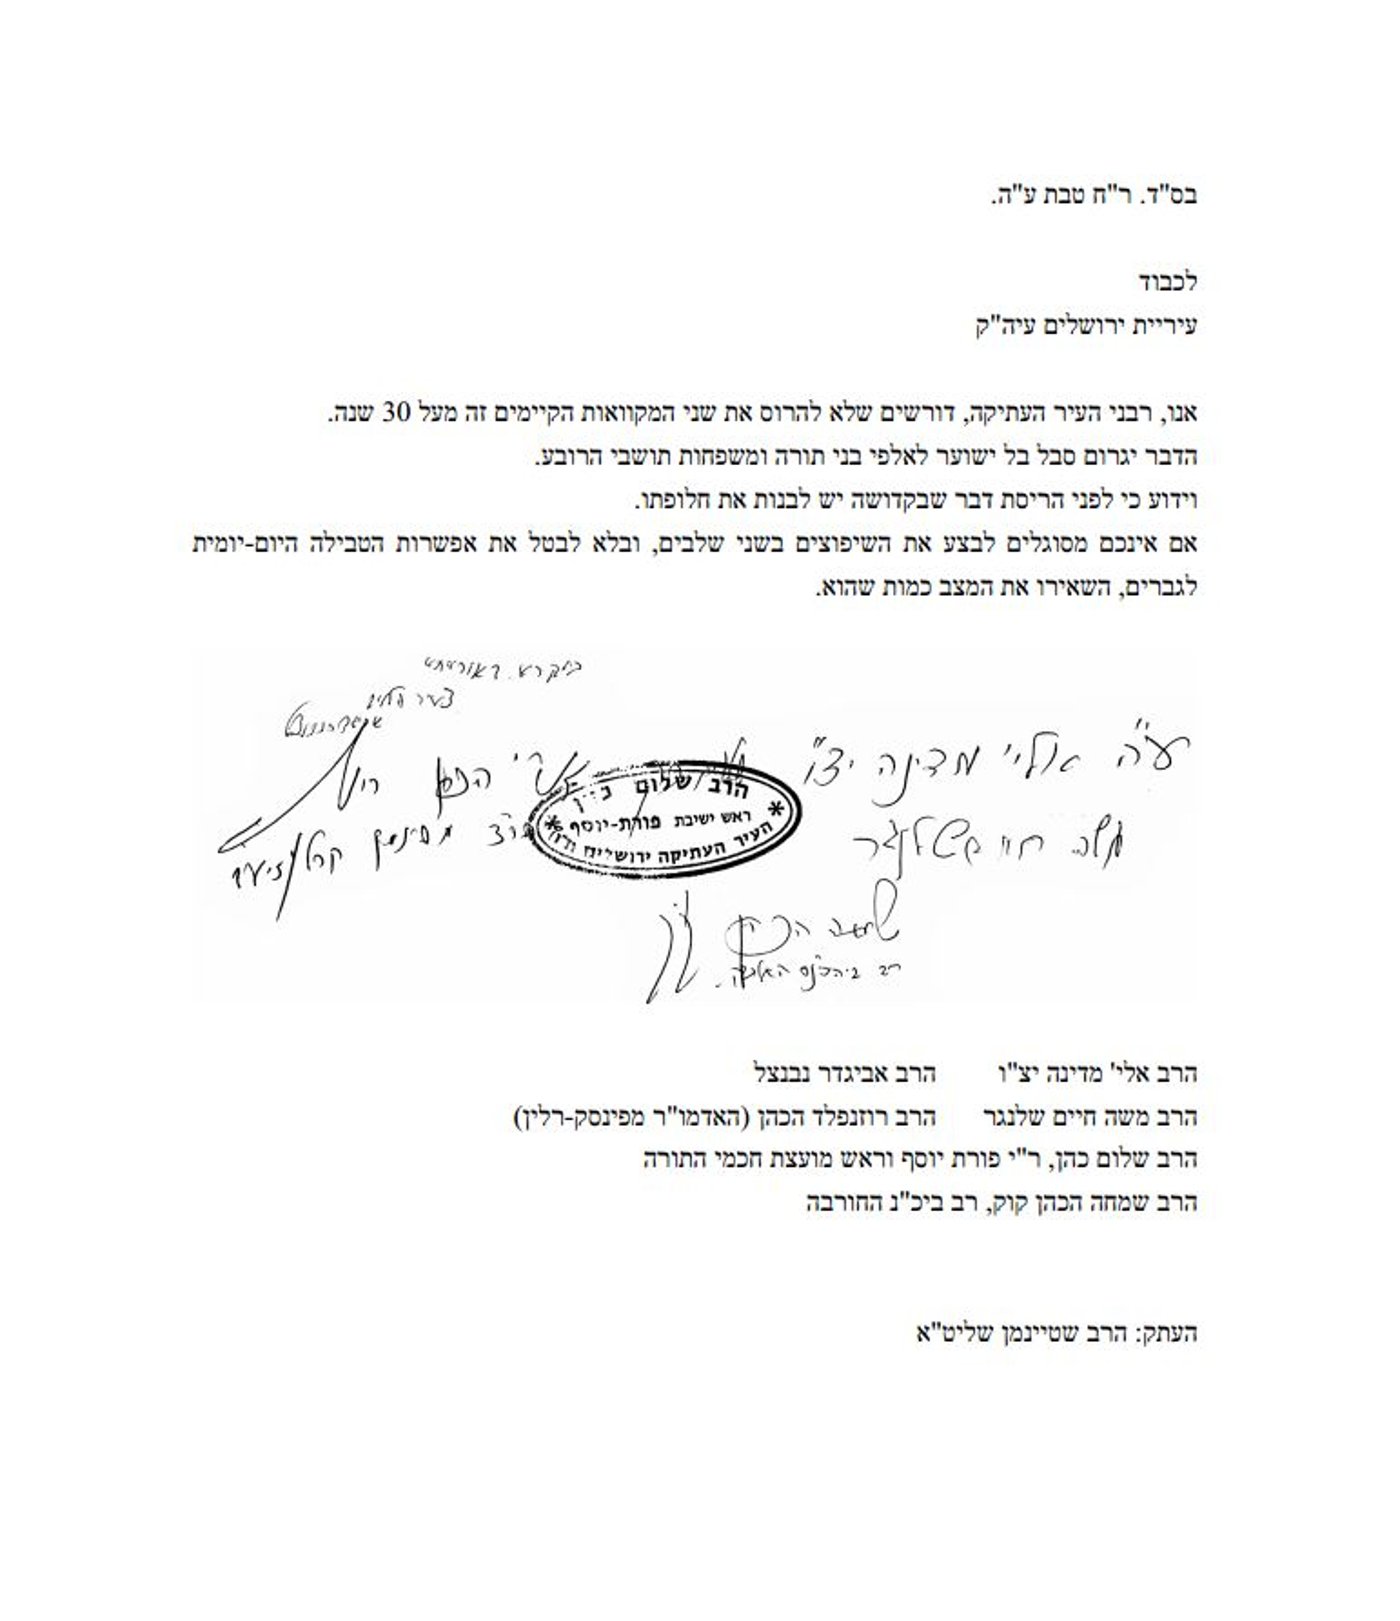 בס"ד. ר"ח טבת ע"ה.
לכבוד
עיריית ירושלים עיה"ק
אנו, רבני העיר העתיקה, דורשים שלא להרוס את שני המקוואות הקיימים זה מעל 30 שנה.
הדבר יגרום סבל בל ישוער לאלפי בני תורה ומשפחות תושבי הרובע.
וידוע כי לפני הריסת דבר שבקדושה יש לבנות את חלופתו.
אם אינכם מסוגלים לבצע את השיפוצים בשני שלבים, ובלא לבטל את אפשרות הטבילה היום-יומית
לגברים, השאירו את המצב כמות שהוא.
ע"ה אלי' מדינה יצ"ו
הרב שלום
ראש ישיבת פורת-יוסף
העיר העתיקה ירושלים
משה חיים שלנגר
שמחה הכהן קוק
רב ביהכ"נס החורבה
הרב אלי' מדינה יצ"ו הרב אביגדר נבנצל
הרב משה חיים שלנגר הרב רוזנפלד הכהן (האדמו"ר מפינסק-רלין)
הרב שלום כהן, ר"י פורת יוסף וראש מועצת חכמי התורה
הרב שמחה הכהן קוק, רב ביכ"נ החורבה
העתק: הרב שטיינמן שליט"א